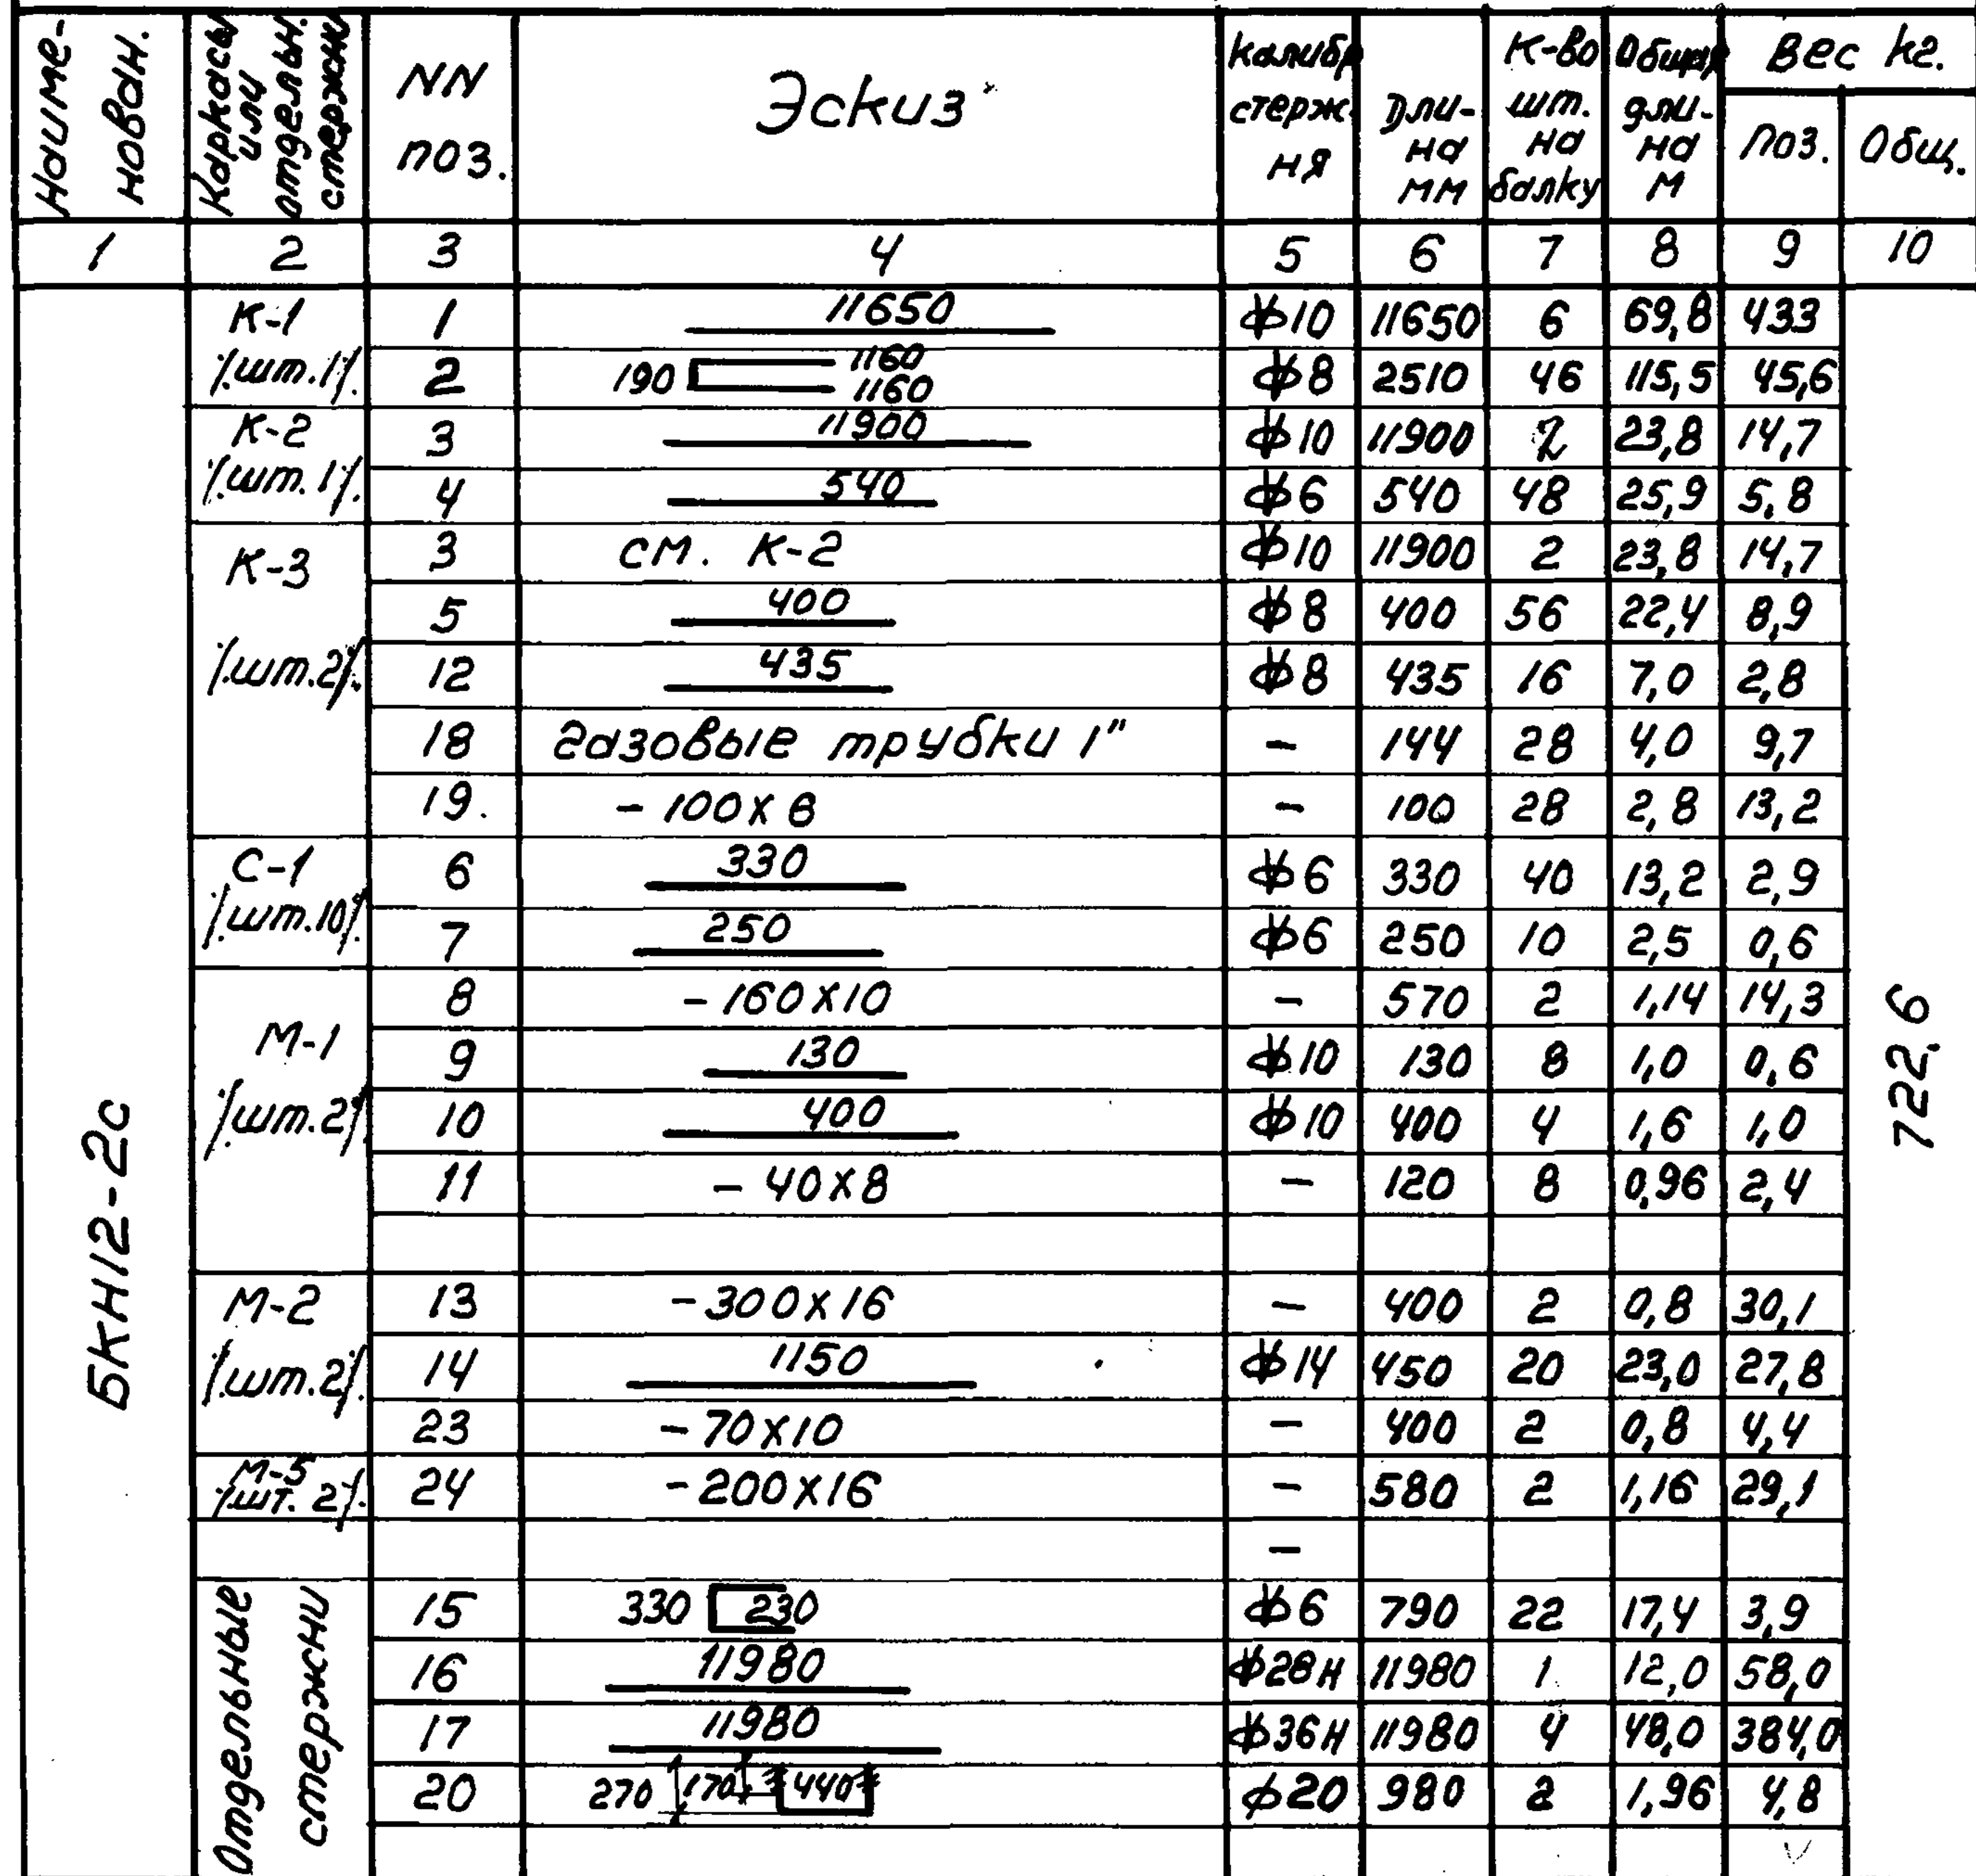 Наиме-
нован.
Каркасы
или
отдельн.
стержни
NN
поз.
Эскиз
Калибр
стерж.
ня
Дли-
на
мм
К-во
шт.
на
балку
Общая
дли-
на
м
Вес кг.
Поз.
Общ.
1 2 3 4 5 6 7 8 9 10
БКН12-2с
К-1
/.шт.1/.
1 11650 ф10 11650 6 69,8 433
2 190 1160 1160 ф8 2510 46 115,5 45,6
К-2
/.шт.1/.
3 11900 ф10 11900 2 23,8 14,7
4 540 ф6 540 48 25,9 5,8
К-3
/.шт.2/.
3 см. К-2 ф10 11900 2 23,8 14,7
5 400 ф8 400 56 22,4 8,9
12 435 ф8 435 16 7,0 2,8
18 газовые трубки 1" – 144 28 4,0 9,7
19. – 100х6 – 100 28 2,8 13,2
С-1
/.шт.10/.
6 330 ф6 330 40 13,2 2,9
7 250 ф6 250 10 2,5 0,6
М-1
/.шт.2/.
8 – 160х10 – 570 2 1,14 14,3
9 130 ф10 130 8 1,0 0,6
10 400 ф10 400 4 1,6 1,0
11 – 40х8 – 120 8 0,96 2,4
М-2
/.шт.2/.
13 – 300х16 – 400 2 0,8 30,1
14 1150 ф14 450 20 23,0 27,8
23 – 70х10 – 400 2 0,8 4,4
М-5
/.шт. 2/.
24 – 200х16 – 580 2 1,16 29,1
–
Отдельные
стержни
15 330 230 ф6 790 22 17,4 3,9
16 11980 ф28н 11980 1 12,0 58,0
17 11980 ф36н 11980 4 48,0 384,0
20 270 170 440 ф20 980 2 1,96 4,8
722,6